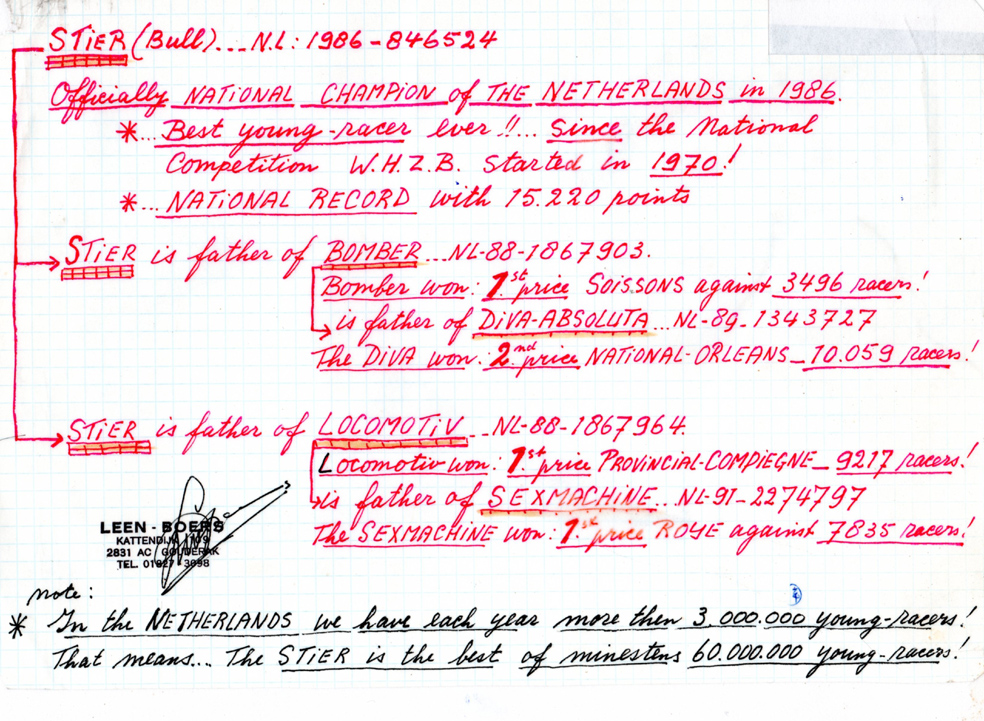 STiER (Bull)... N.L: 1986-846524
Officially NATiONAL CHAMPiON of THE NETHERLANDS in 1986.
*... Best young-racer ever!!... Since the National
Competition W.H.Z.B. started in 1970!
*... NATiONAL RECORD with 15.220 points
STiER is father of BOMBER...NL-88-1867903.
Bomber won: 1st price SOiSSONS against 3496 racers!
is father of DiVA-ABSOLUTA...NL-89-1343727
The DiVA won: 2nd price NATiONAL-ORLEANS_10.059 racers!
STiER is father of LOCOMOTiV...NL-88-1867964.
Locomotiv won: 1st price PROViNCiAL-COMPiEGNE_9217 racers!
is father of SEXMACHiNE...NL-91-2274797
The SEXMACHiNE won: 1st price ROYE against 7835 racers!
LEEN - BOERS
KATTENDIJK 109
2831 AC GOUDERAK
TEL. 01827 - 3098
note:
* In the NETHERLANDS we have each year more then 3.000.000 young-racers!
That means... The STiER is the best of minestens 60.000.000 young-racers!